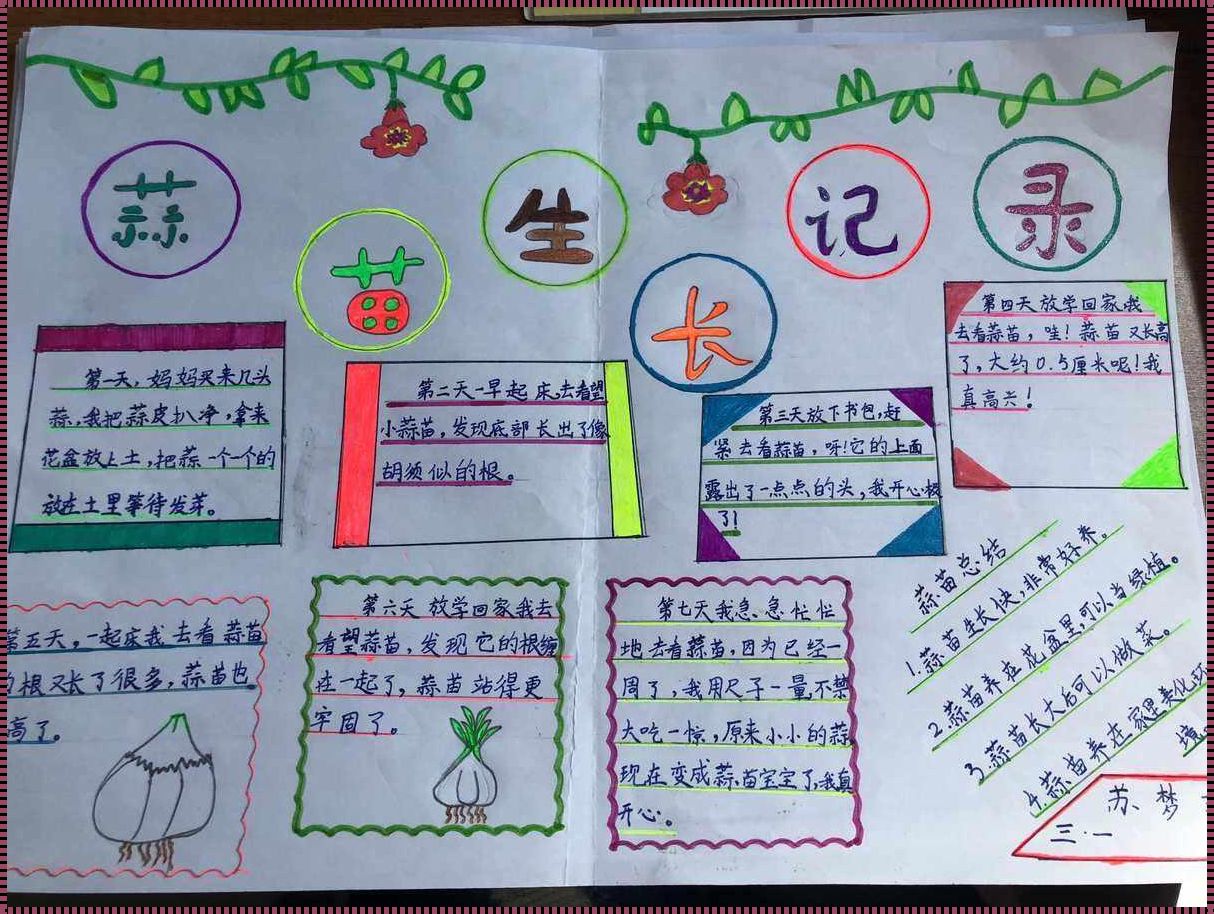 蒜苗生长记录
第一天,妈妈买来几头
蒜,我把蒜皮扒净,拿来
花盆放上土,把蒜一个一个的
放在土里等待发芽。
第二天一早起床,去看望
小蒜苗,发现底部长出了像
胡须似的根。
第三天放下书包,赶
紧去看蒜苗,呀!它的上面
露出了一点点的头,我开心极
了!
第四天放学回家,我
去看蒜苗,哇!蒜苗又长高
了,大约0.5厘米呢!我
真高兴!
第五天,一起床我去看蒜苗
的根又长了很多,蒜苗也
高了。
第六天放学回家我去
看望蒜苗,发现它的根缠
在一起了,蒜苗站得更
牢固了。
第七天我急、急忙忙
地去看蒜苗,因为已经一
周了,我用尺子一量不禁
大吃一惊,原来小小的蒜
现在变成蒜苗宝宝了,我真
开心。
蒜苗总结
1.蒜苗生长快,非常好养。
2.蒜苗养在花盆里,可以当绿植。
3.蒜苗长大后可以做菜。
4.蒜苗养在家里美化环
境。
苏梦
三·一